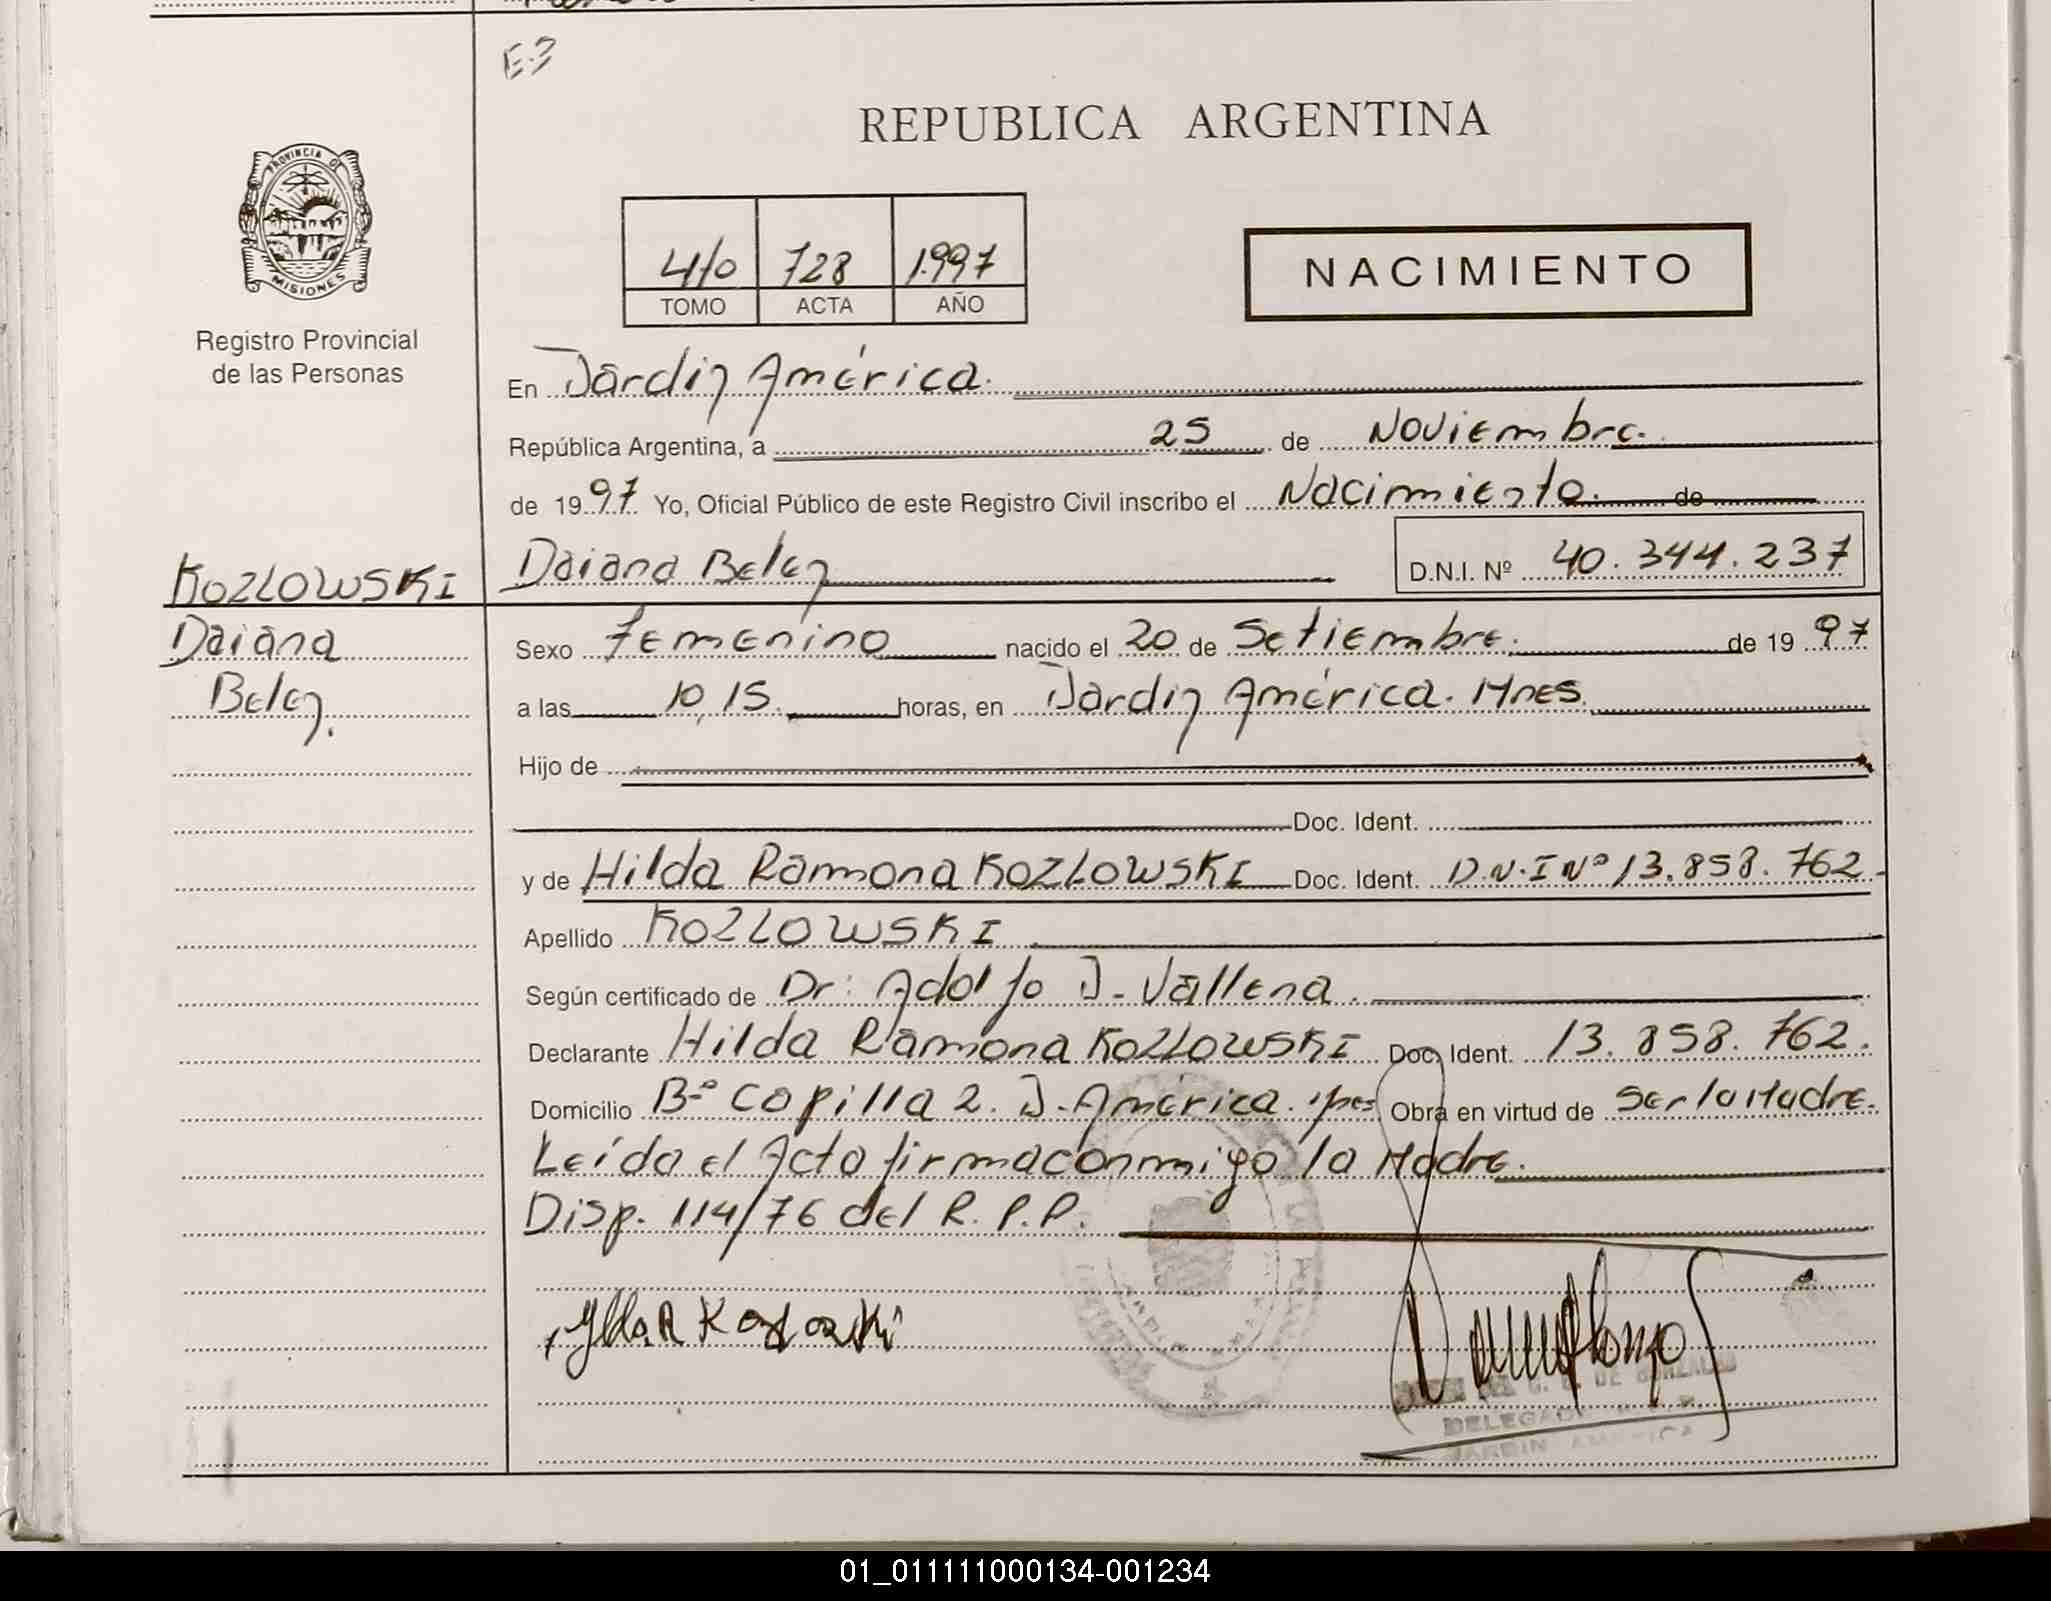 E-3
REPUBLICA ARGENTINA
PROVINCIA DE
MISIONES
Registro Provincial
de las Personas
4/0 728 1.997
TOMO ACTA AÑO
NACIMIENTO
En Jardin América.
República Argentina, a 25 de Noviembre.
de 1997 Yo, Oficial Público de este Registro Civil inscribo el Nacimiento. de
KOZLOWSKI Daiana Belen D.N.I. Nº 40.344.237
Daiana Sexo Femenino nacido el 20 de Setiembre. de 1997
Belen. a las 10,15. horas, en Jardin América. Mnes.
Hijo de
Doc. Ident.
y de Hilda Ramona KOZLOWSKI Doc. Ident. D.N.I Nº 13.858.762.
Apellido KOZLOWSKI
Según certificado de Dr: Adolfo J. Vallena.
Declarante Hilda Ramona KOZLOWSKI Doc. Ident. 13.858.762.
Domicilio Bº Capilla 2. J. América. Obra en virtud de Ser la Madre.
Leída el Acta firma conmigo la Madre.
Disp. 114/76 del R.P.P.
DE GONZALEZ
JARDIN AMERICA
01_011111000134-001234